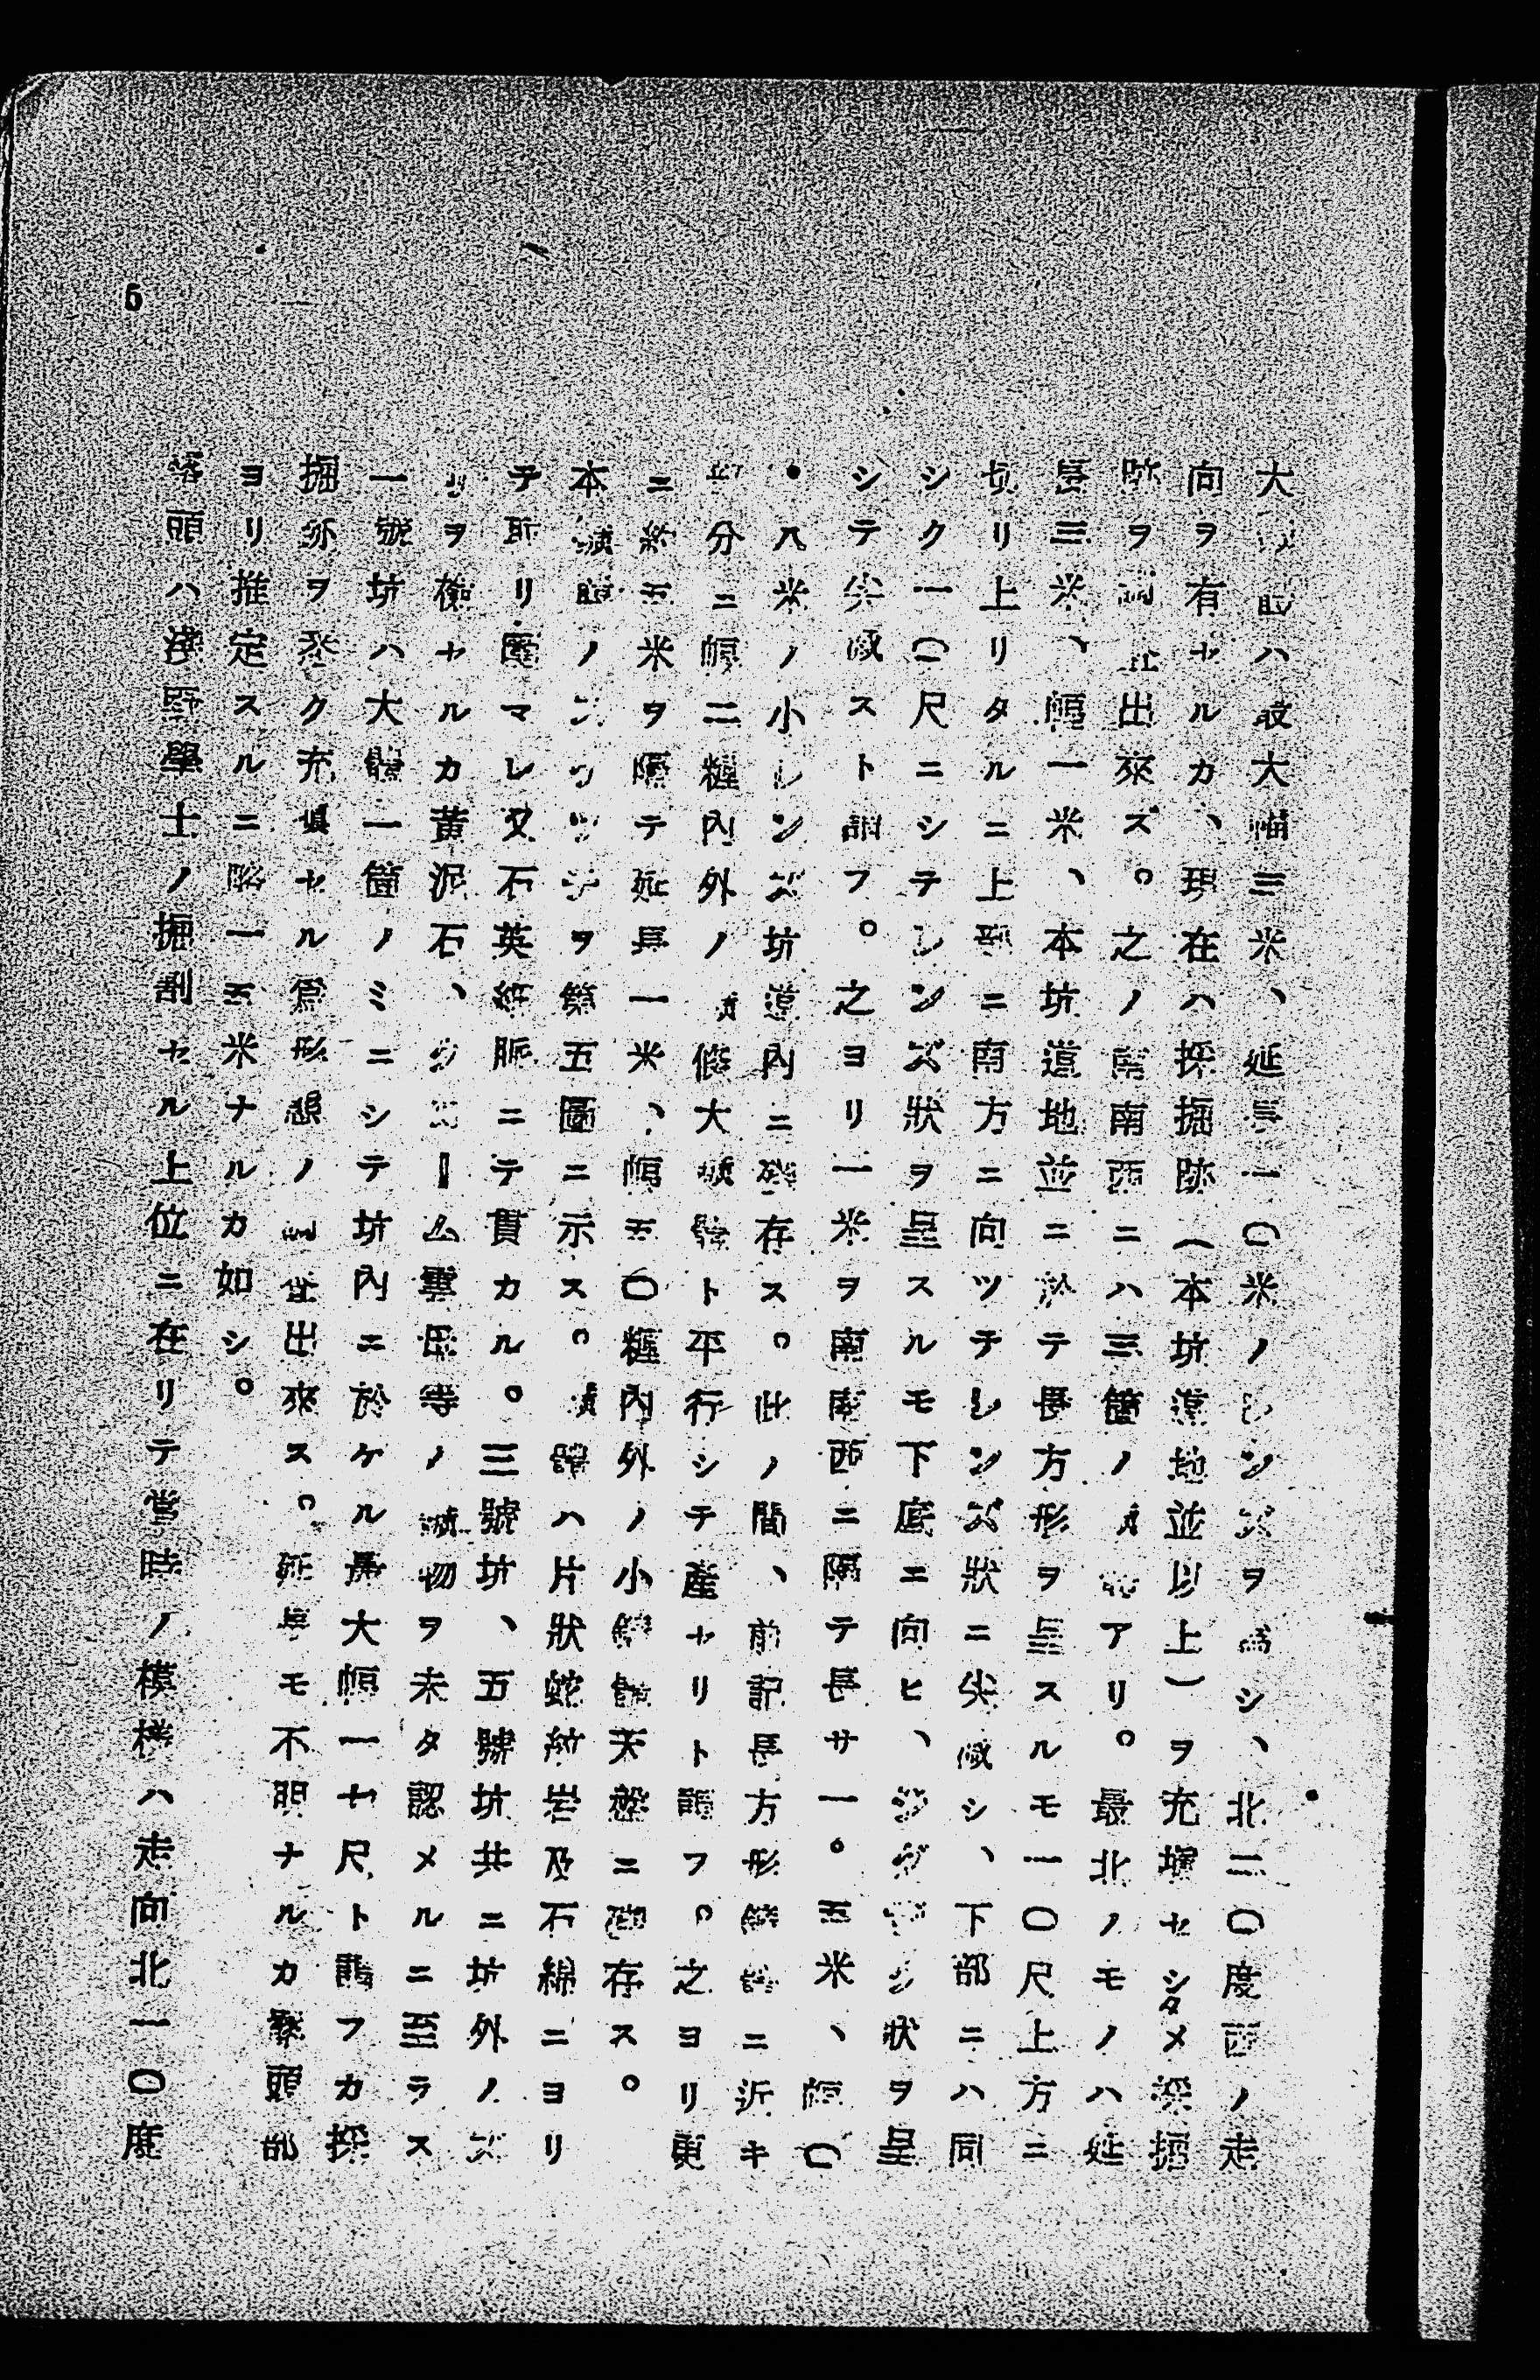 大 ハ最大幅三米、延長一〇米ノレンズヲ為シ、北二〇度西ノ走
向ヲ有セルカ、現在ハ採掘跡(本坑道地並以上)ヲ充塡セシタメ深掘
跡ヲ調査出來ズ。之ノ南南西ニハ三箇ノ アリ。最北ノモノハ延
長三米、幅一米、本坑道地並ニ於テ長方形ヲ呈スルモ一〇尺上方ニ
坑リ上リタルニ上部ニ南方ニ向ツテレンズ狀ニ尖滅シ、下部ニハ同
シク一〇尺ニシテレンズ狀ヲ呈スルモ下底ニ向ヒ、 狀ヲ呈
シテ尖滅スト謂フ。之ヨリ一米ヲ南南西ニ隔テ長サ一。五米、幅〇
・八米ノ小レンズ坑道內ニ殘存ス。此ノ間、前記長方形鑛體ニ近キ
部分ニ幅二糎內外ノ 條大鑛體ト平行シテ產セリト謂フ。之ヨリ更
ニ約五米ヲ隔テ延長一米、幅五〇糎內外ノ小鑛體天盤ニ殘存ス。
本鑛體ノ ヲ第五圖ニ示ス。鑛體ハ片狀蛇紋岩及石綿ニヨリ
テ取リ圍マレ又石英細脈ニテ貫カル。三號坑、五號坑共ニ坑外ノズ
リヲ檢セルカ黃泥石、 ーム雲母等ノ鑛物ヲ未タ認メルニ至ラス
一號坑ハ大體一箇ノミニシテ坑內ニ於ケル最大幅一七尺ト謂フカ採
掘跡ヲ悉ク充塡セル爲形態ノ調査出來ス。延長モ不明ナルカ露頭部
ヨリ推定スルニ略一五米ナルカ如シ。
露頭ハ淺野學士ノ掘割セル上位ニ在リテ當時ノ模樣ハ走向北一〇度
6